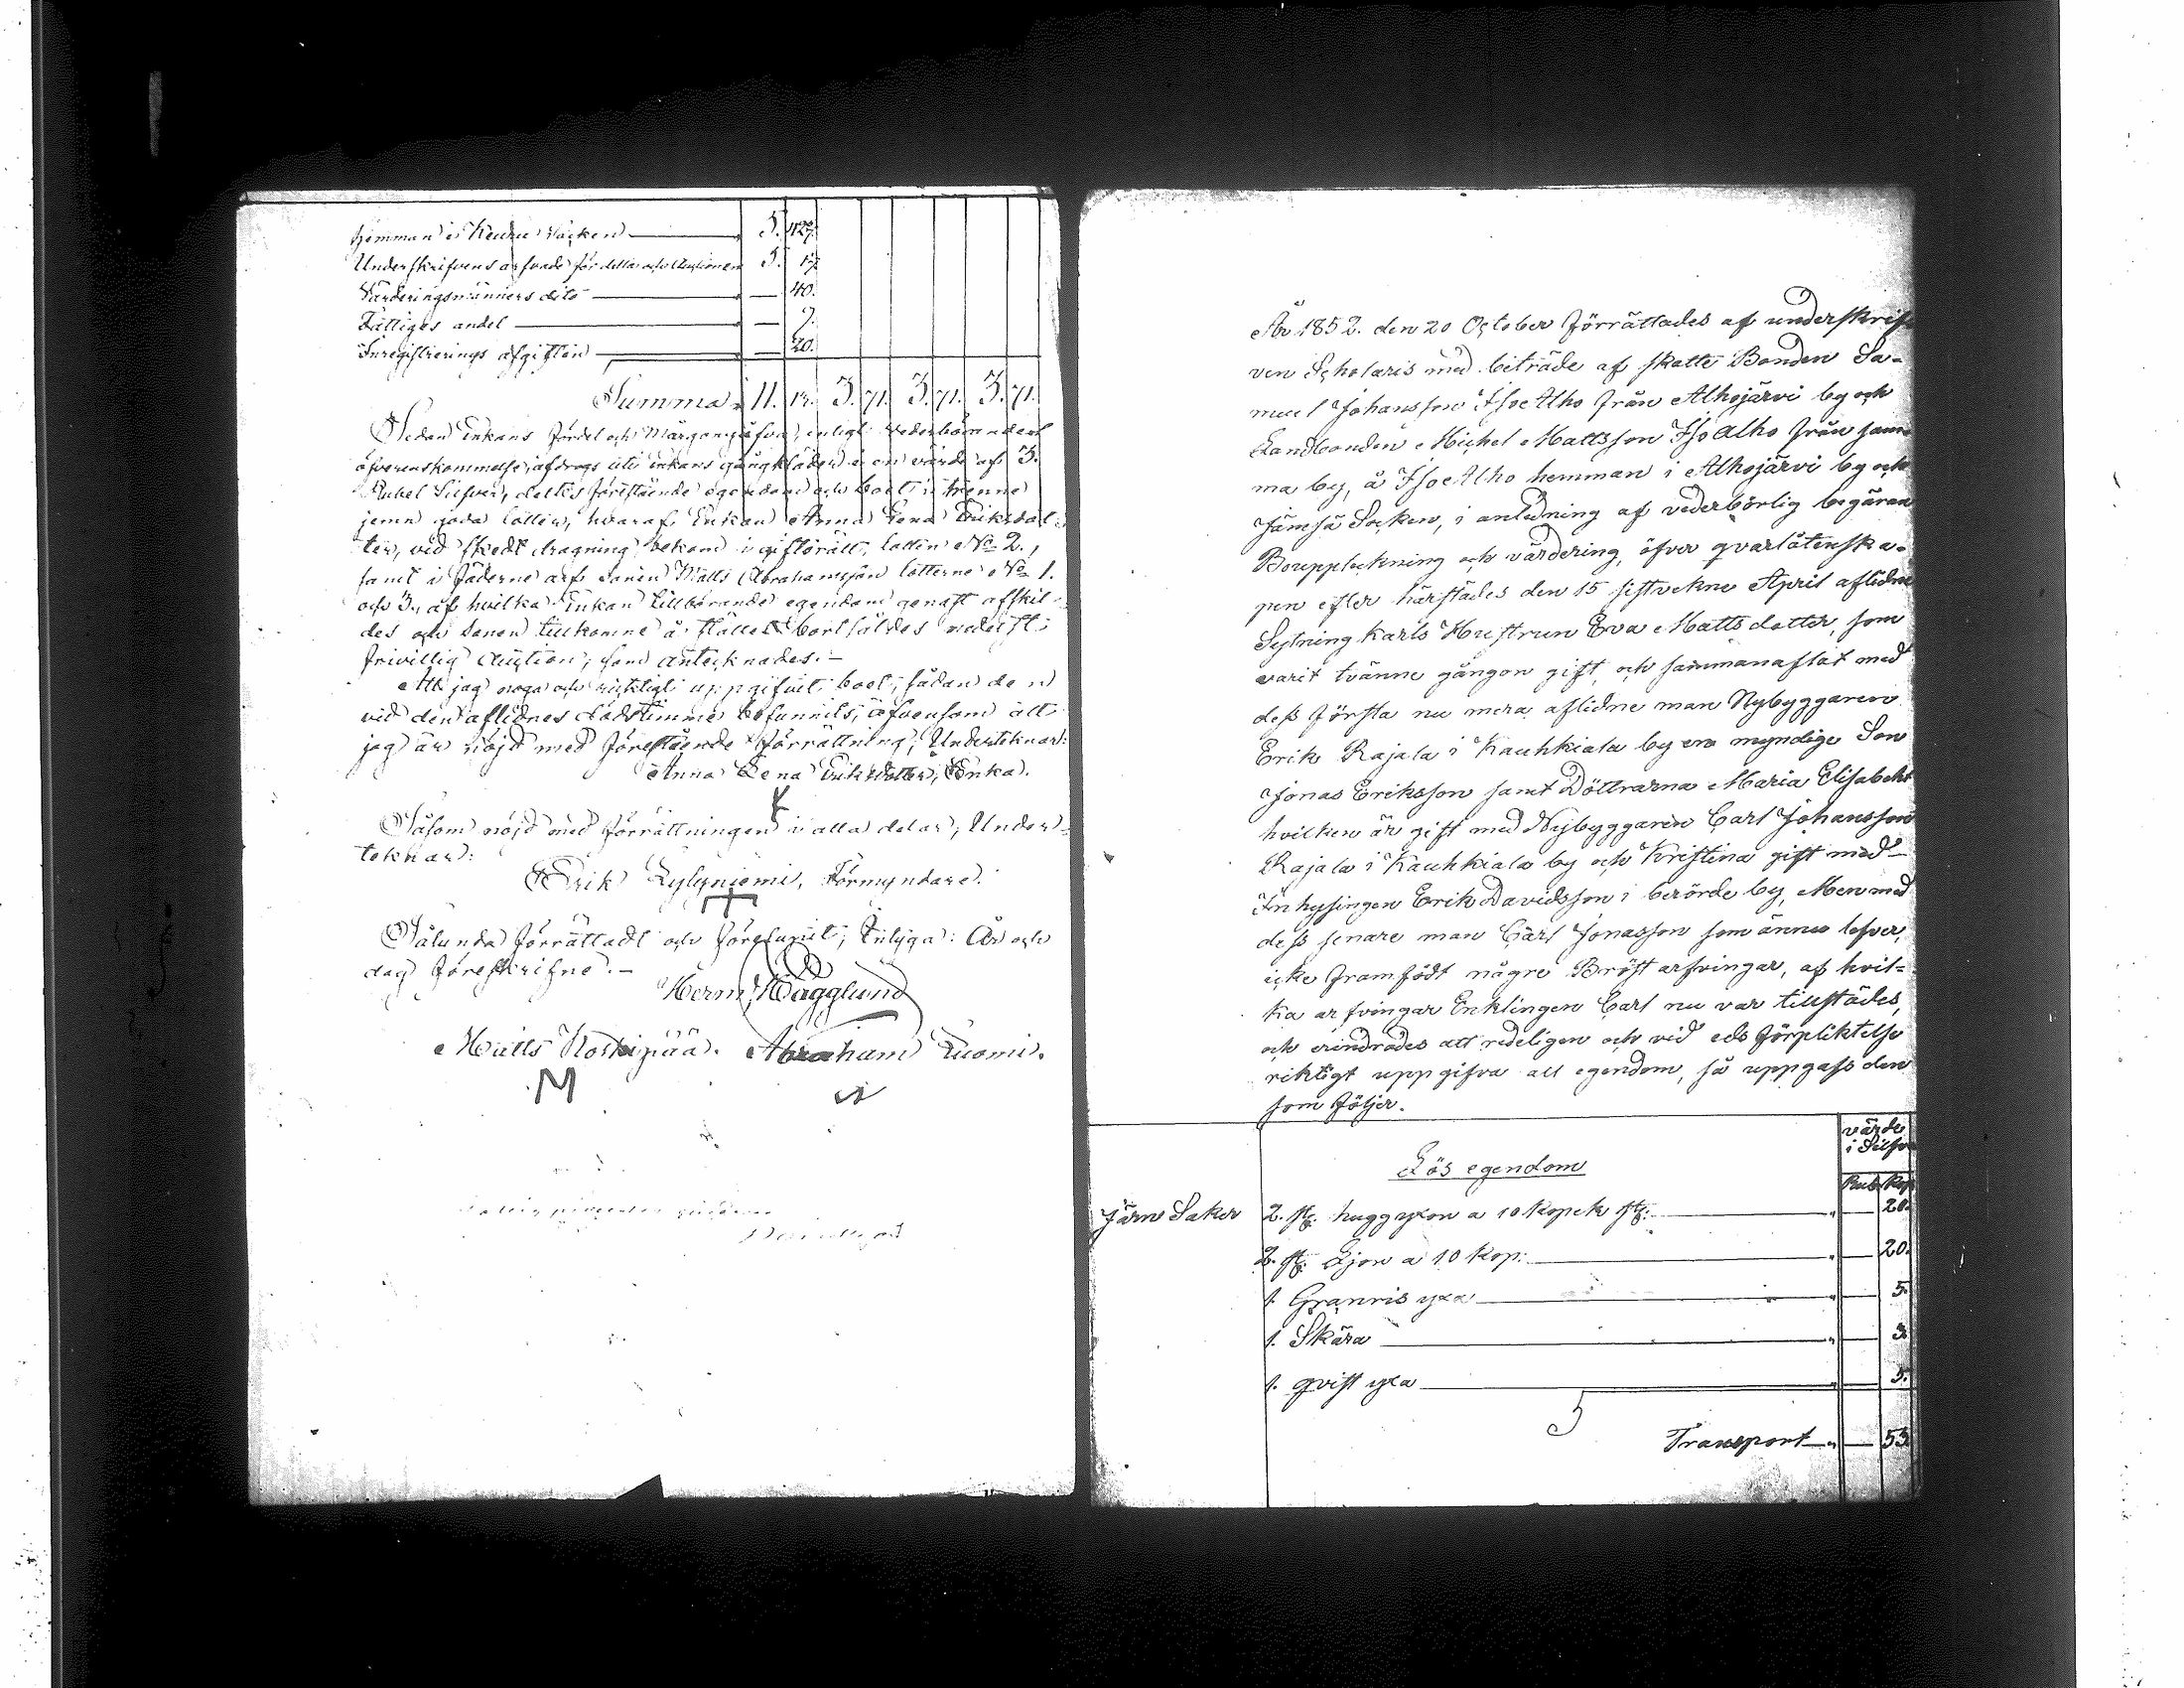 hemman i Keuru Såcken 5. 127.
Underskrifvens arfvade för detta och Auctionen 5. 17.
Värderingsmänners dito — 40.
Fattiges andel — 9.
Inregistrerings afgiften — 20.
Summa 11. 3. 71. 3. 71. 3. 71.
Sedan Enkans fördel och Märgongåfva, enligt vederbörandes
öfverenskommelse, afdrogs uti enkans gångkläder i en värde af 3.
Rubel Silfver, deltes förestående egendom och boet i trenne
jemn goda lotter, hvaraf Enkan Anna Lena Eriksdot-
ter, vid skedt dragning bekom i giftorätt, lotten No 2.,
samt i fäderne arf sonen Matts Abrahamsson lotterne No 1.
och 3., af hvilka Enkan tillhörande egendom genast afskil-
des och sonen tillkomne å stället bortsåldes medelst
frivillig Auction, som antecknades.—
Att jag noga och riktigt uppgifvit boet, sådan den
vid den aflidnes dödstimme befunnits, äfvensom att
jag är nöjd med förestående förrättning, Underteknar:
Anna Lena Eriksdotter, Enka.
Såsom nöjd med förrättningen i alla delar, Under-
teknar:
Erik Lylyniemi, Förmyndare.
Sålunda förrättadt och förelupit, Intyga: År och
dag föreskrifne.—
Herm. Hägglund
Matts Koskipää. Abraham Luomi.
M
År 1852. den 20 October förrättades af underskrif
ven Scholaris med biträde af skatte Bonden Sa-
muel Johansson Iso Alho från Alhojärvi by och
Landbonden Michel Mattsson Iso Alho från sam
ma by, å Iso Alho hemman i Alhojärvi by och
Jämsä Socken, i anledning af vederbörlig begäran
Bouppteckning och värdering, öfver qvarlåtenska-
pen efter härstädes den 15 sistvekne April aflidne
Sytning karls Hustrun Eva Mattsdotter, som
varit tvänne gångor gift, och sammanaflat med
dess första nu mera aflidne man Nybyggaren
Erik Rajala i Kauhkiala by en myndige Son
Jonas Eriksson samt Döttrarna Maria Elisabeht
hvilken är gift med Nybyggaren Carl Johansson
Rajala i Kauhkiala by och Kristina gift med
Inhysingen Erik Davidsson i berörde by, Men med
dess senare man Carl Jonasson som ännu lefver,
icke framfödt någre Bröst arfvingar, af hvil-
ka arfvingar Enklingen Carl nu var tillstädes,
och erindrades att redeligen och vid eds förpliktelse
riktigt uppgifva all egendom, så uppgafs den
som följer.
värde
i Silfv
Lös egendom
Rub Kop
Järn Saker 2. st. huggyxor a 10 Kopek st: — 20.
2. st. Ljor a 10 Kop: — 20.
1. Granris yxa — 5.
1. Skära — 3.
1. qvist yxa — 5.
Transport — 53.